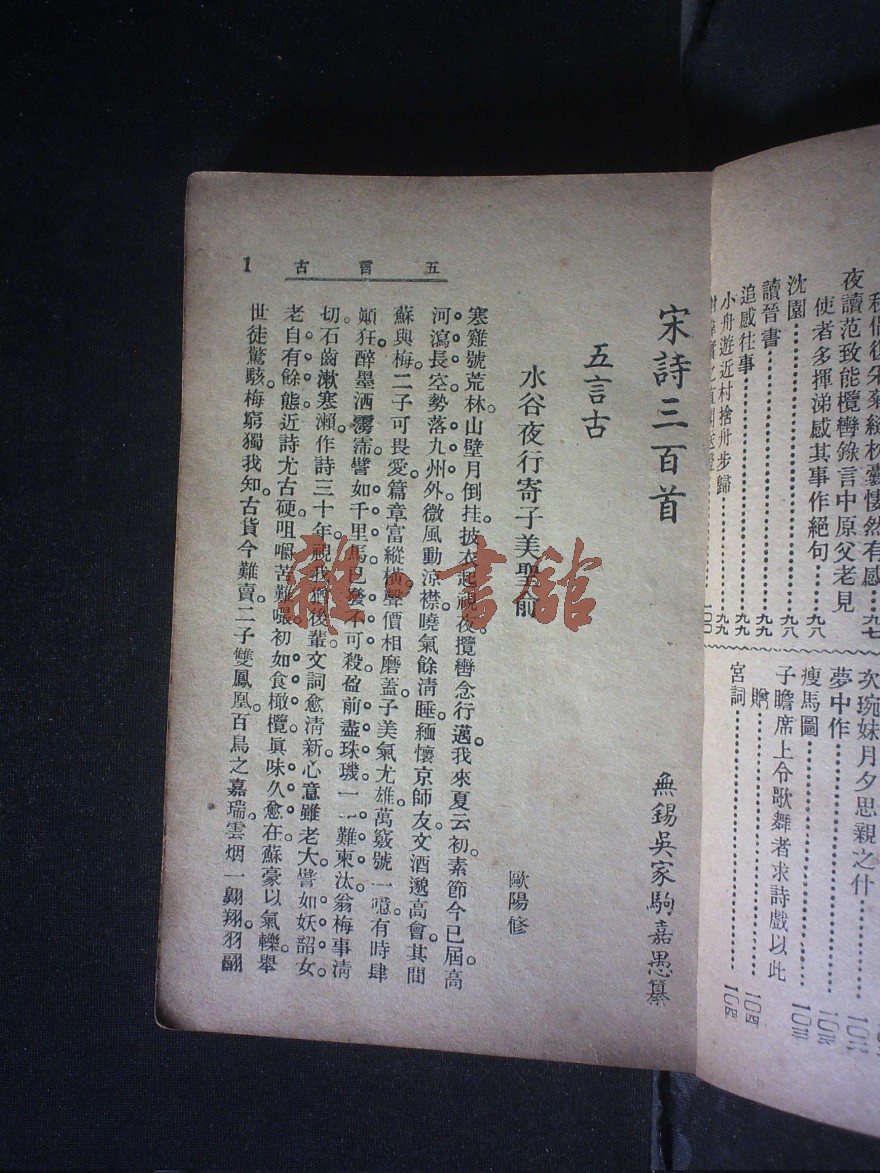 夜讀范致能攬轡錄言中原父老見
使者多揮涕感其事作絕句……九八
沈園……九八
讀晉書……九九
追感往事……九九
小舟遊近村捨舟步歸……九九
次琬妹月夕思親之什……
夢中作……
瘦馬圖……
子瞻席上令歌舞者求詩戲以此
贈……一〇四
宮詞……一〇四
五言古
1
宋詩三百首
無錫吳家駒嘉愚纂
五言古
水谷夜行寄子美聖俞
歐陽修
寒雞號荒林。山壁月倒挂。披衣起視夜。攬轡念行邁。我來夏云初。素節今已屆。高
河瀉長空。勢落九州外。微風動涼襟。曉氣餘清睡。緬懷京師友。文酒邈高會。其間
蘇與梅。二子可畏愛。篇章富縱橫。聲價相磨蓋。子美氣尤雄。萬竅號一噫。有時肆
顛狂。醉墨洒霶霈。譬如千里馬。已發不可殺。盈前盡珠璣。一一難柬汰。翁梅事清
切。石齒漱寒瀨。作詩三十年。視我猶後輩。文詞愈清新。心意雖老大。譬如妖韶女。
老自有餘態。近詩尤古硬。咀嚼苦難嘬。初如食橄欖。眞味久愈在。蘇豪以氣轢。舉
世徒驚駭。梅窮獨我知。古貨今難賣。二子雙鳳凰。百鳥之嘉瑞。雲烟一翺翔。羽翮
雜·書館